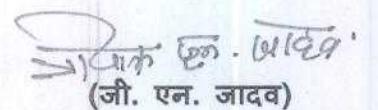 एन. जादव
(जी. एन. जादव)